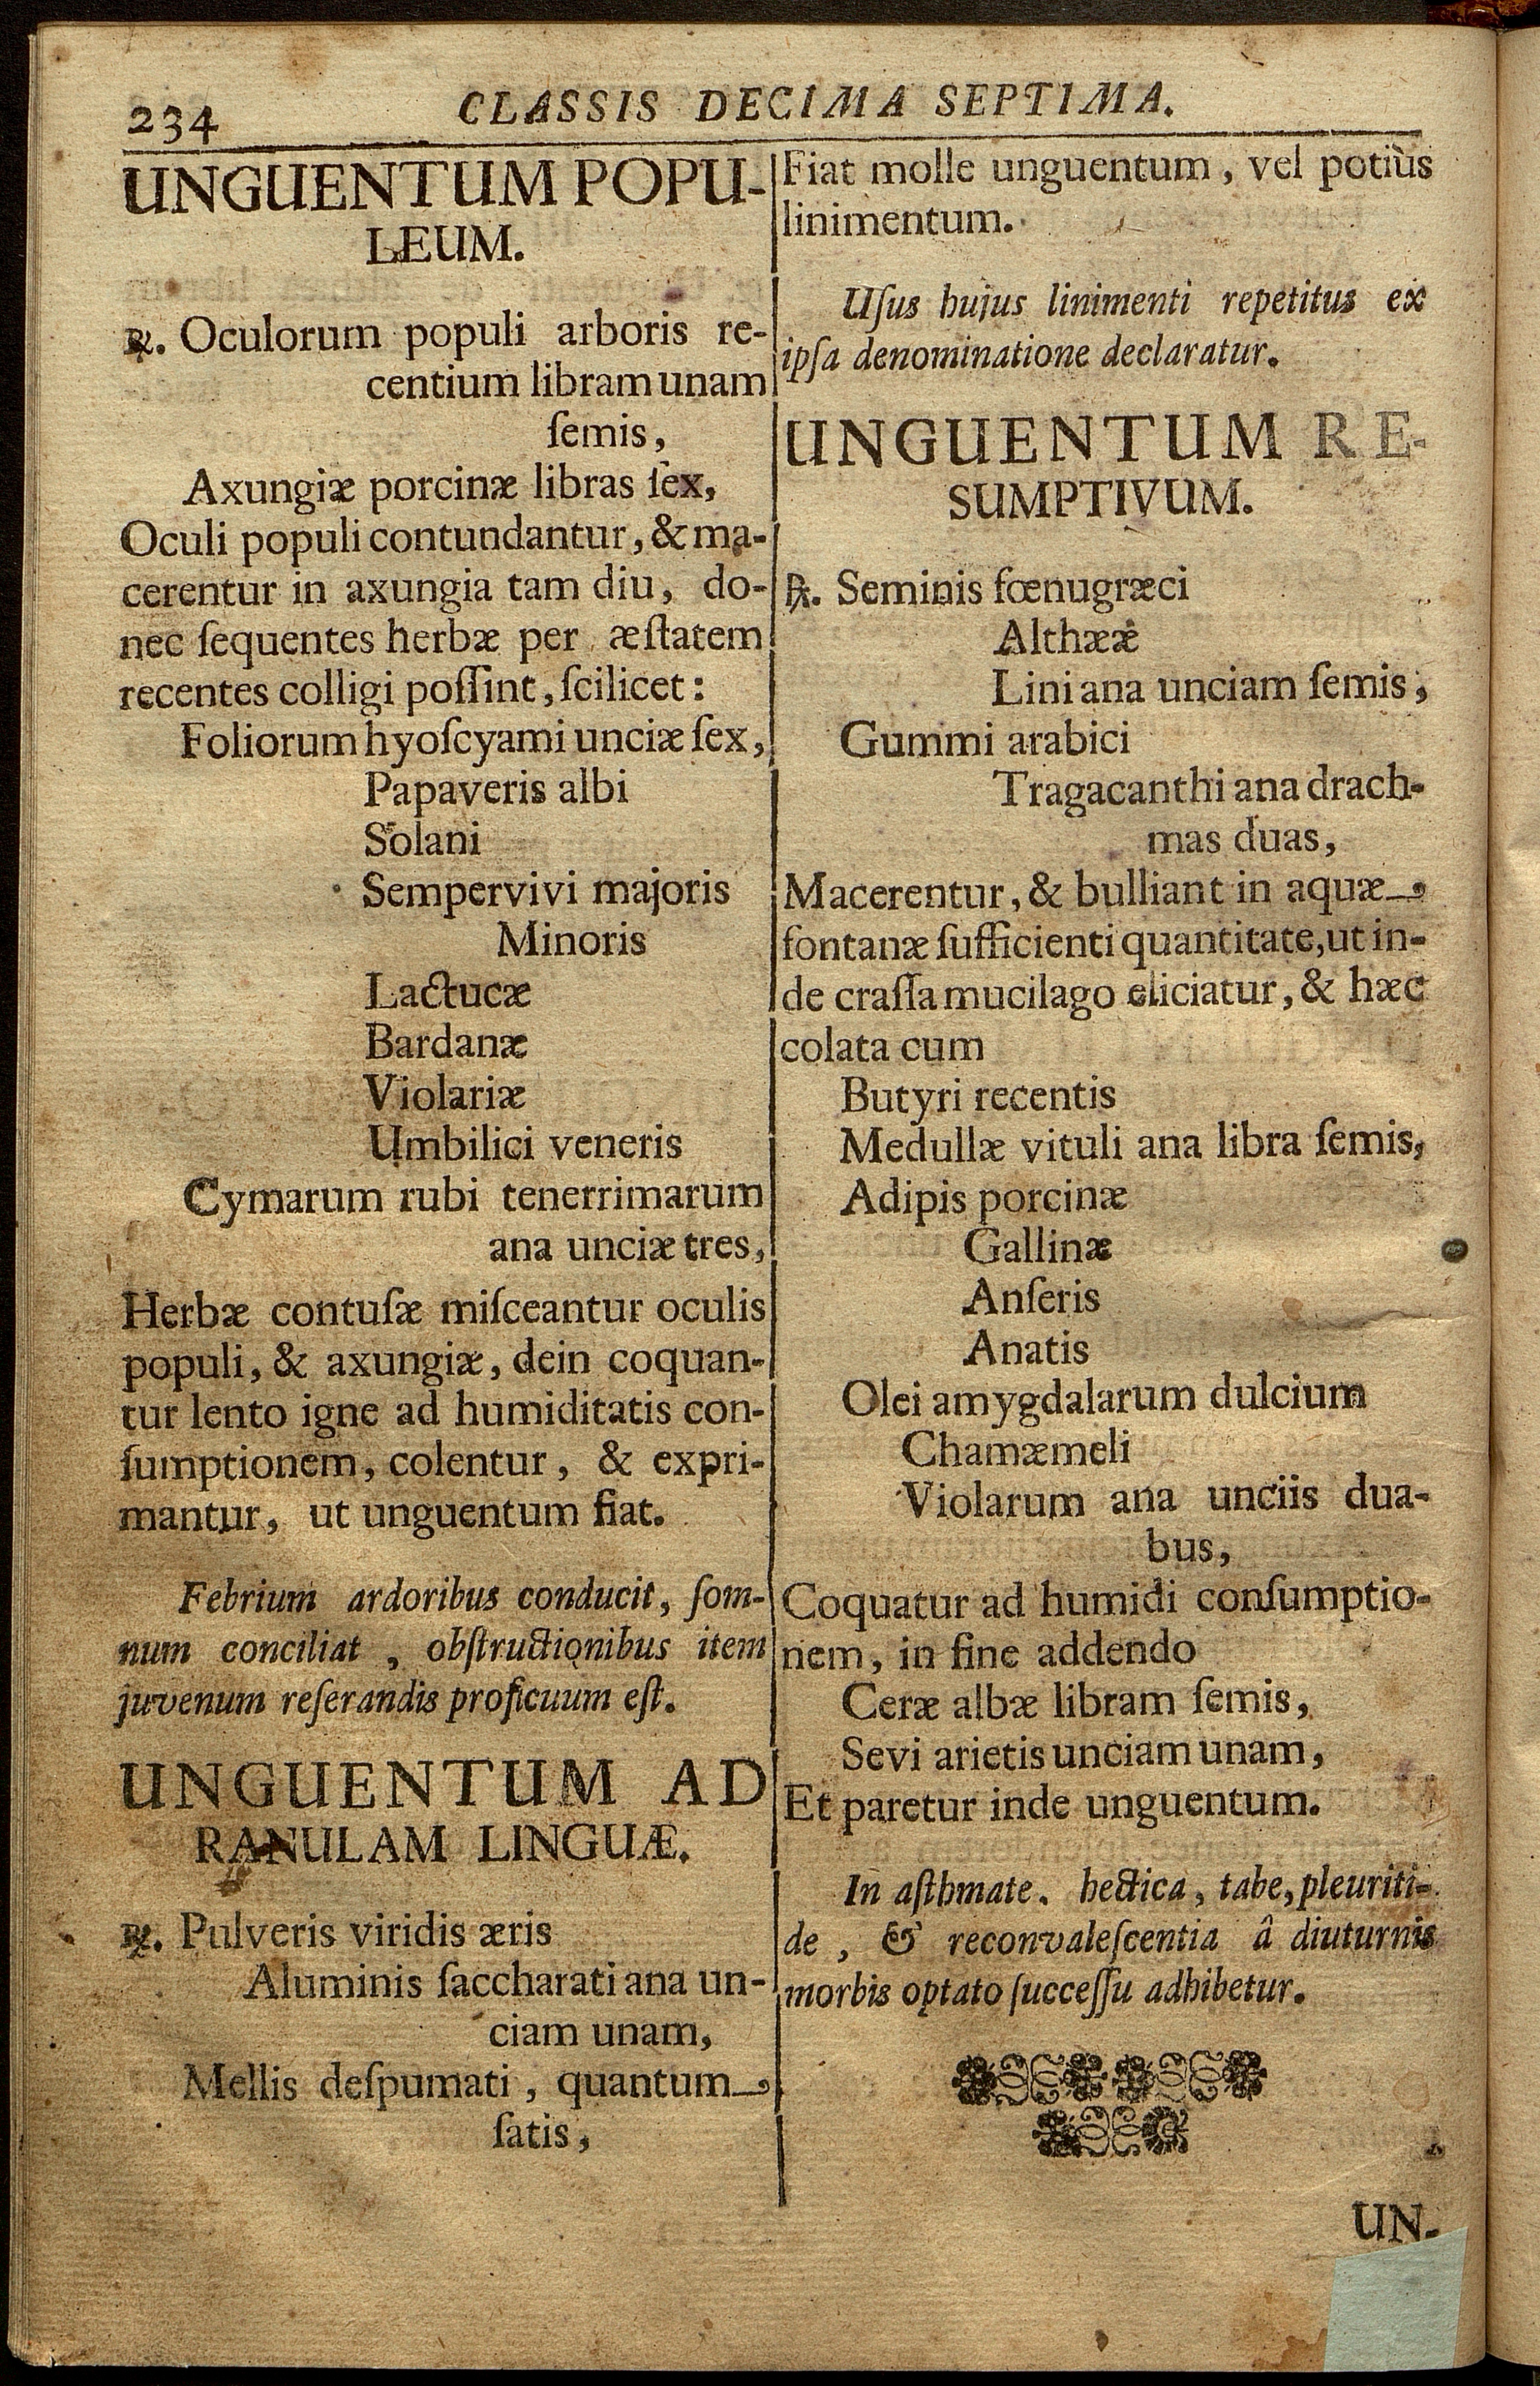 234
CLASSIS DECIMA SEPTIMA.
UNGUENTUM POPU-
LEUM.
℞. Oculorum populi arboris re-
centium libram unam
ſemis,
Axungiæ porcinæ libras ſex,
Oculi populi contundantur, & ma-
cerentur in axungia tam diu, do-
nec ſequentes herbæ per æſtatem
recentes colligi poſſint, ſcilicet:
Foliorum hyoſcyami unciæ ſex,
Papaveris albi
Solani
Sempervivi majoris
Minoris
Lactucæ
Bardanæ
Violariæ
Umbilici veneris
Cymarum rubi tenerrimarum
ana unciæ tres,
Herbæ contuſæ miſceantur oculis
populi, & axungiæ, dein coquan-
tur lento igne ad humiditatis con-
ſumptionem, colentur, & expri-
mantur, ut unguentum fiat.
Febrium ardoribus conducit, ſom-
num conciliat, obſtructionibus item
juvenum reſerandis proficuum eſt.
UNGUENTUM AD
RANULAM LINGUÆ.
℞. Pulveris viridis æris
Aluminis ſaccharati ana un-
ciam unam,
Mellis deſpumati, quantum
ſatis,
Fiat molle unguentum, vel potiùs
linimentum.
Uſus hujus linimenti repetitus ex
ipſa denominatione declaratur.
UNGUENTUM RE-
SUMPTIVUM.
℞. Seminis fœnugræci
Althææ
Lini ana unciam ſemis,
Gummi arabici
Tragacanthi ana drach-
mas duas,
Macerentur, & bulliant in aquæ
fontanæ ſufficienti quantitate, ut in-
de craſſa mucilago eliciatur, & hæc
colata cum
Butyri recentis
Medullæ vituli ana libra ſemis,
Adipis porcinæ
Gallinæ
Anſeris
Anatis
Olei amygdalarum dulcium
Chamæmeli
Violarum ana unciis dua-
bus,
Coquatur ad humidi conſumptio-
nem, in fine addendo
Ceræ albæ libram ſemis,
Sevi arietis unciam unam,
Et paretur inde unguentum.
In aſthmate. hectica, tabe, pleuriti-
de, & reconvaleſcentia â diuturnis
morbis optato ſucceſſu adhibetur.
UN-